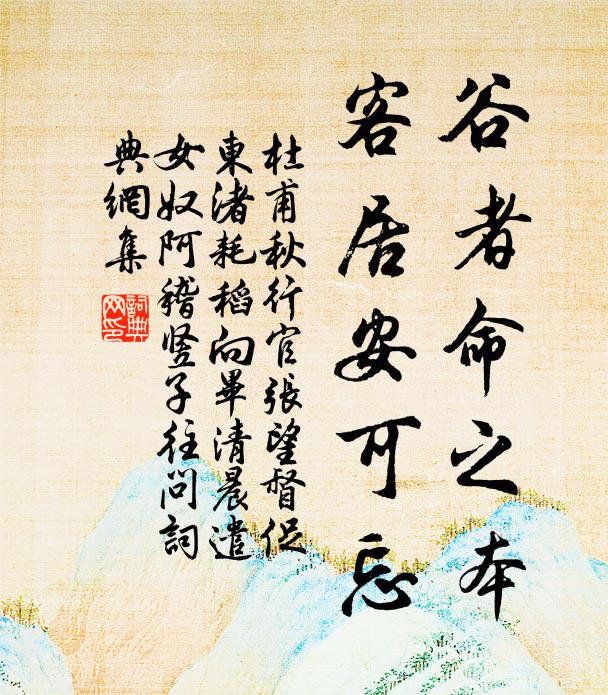 谷者命之本
客居安可忘
杜甫秋行官張望督促
東渚耗稻向畢清晨遣
女奴阿稽竖子往問詞
典網集
詞典
网印